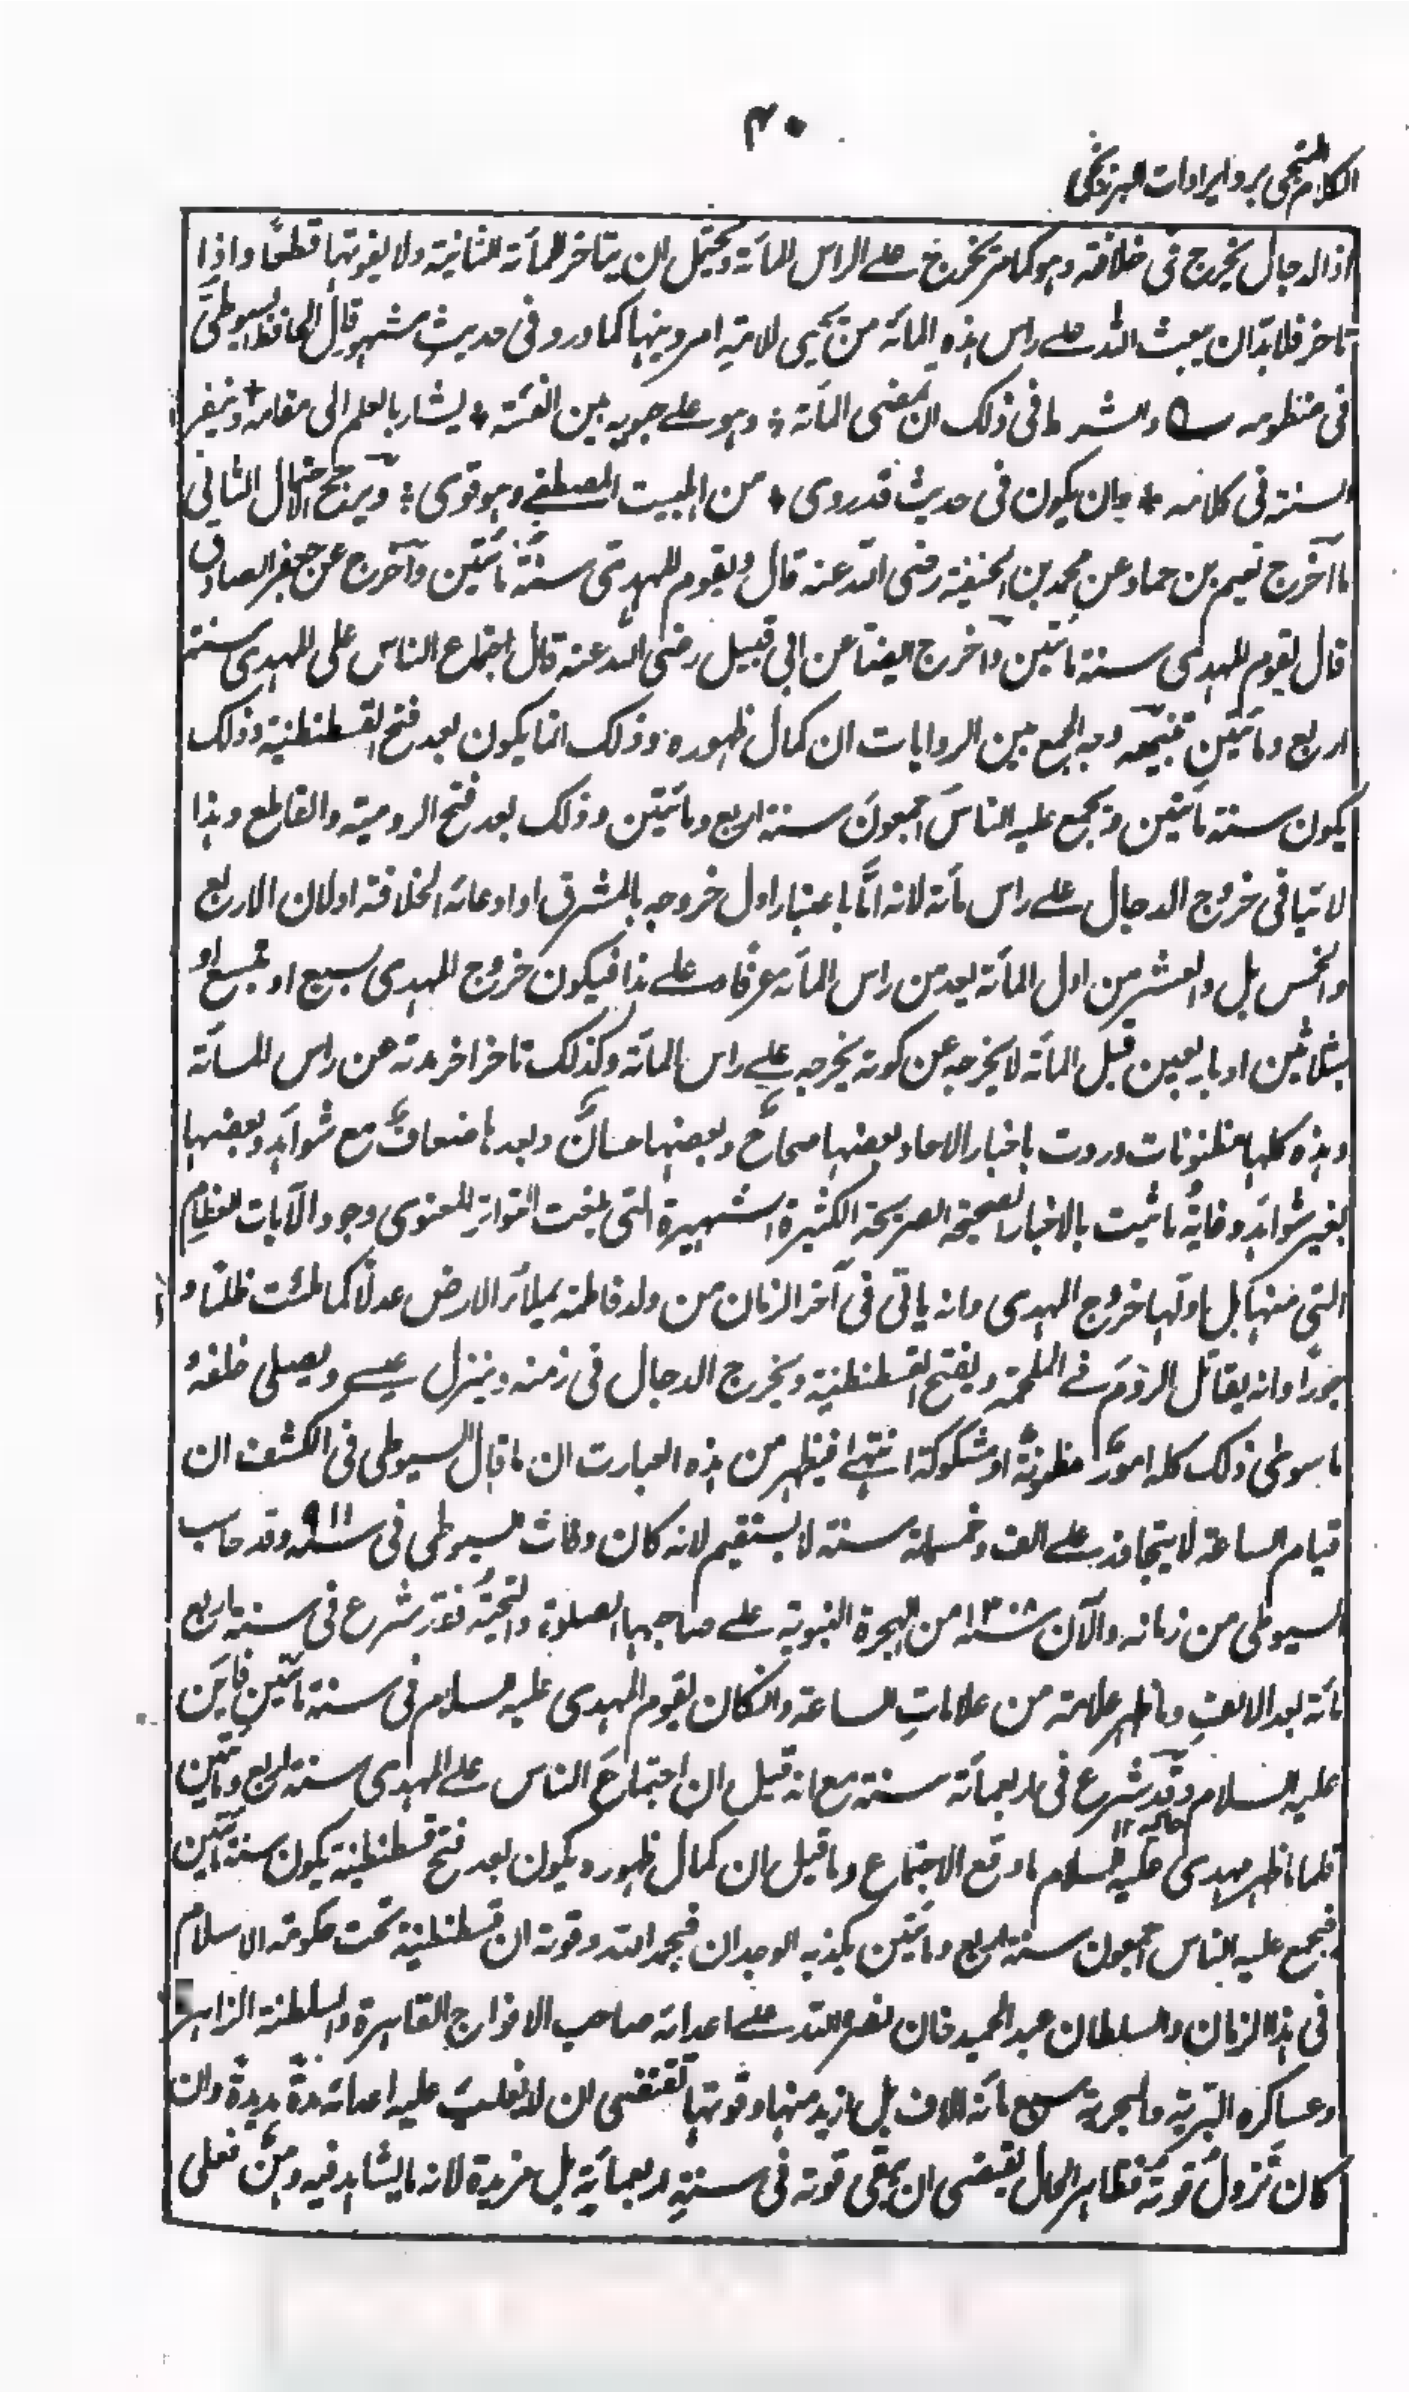 ٤٠
الكلام المنجى برد ايرادات البرزنجى
اذ الدجال يخرج فى خلافته وهو كما مر يخرج على الراس المأئة ويحتمل ان يتاخر للمأئة الثانية ولا يفوتها قطعًا واذا
تاخر فلا بدّ ان يبعث الله على راس هذه المائة من يحيى للامة امر دينها كما ورد فى حديث مشهور قال الحافظ السيوطى
فى منظومه والشرط فى ذلك ان تمضى المأئة ؛ وهو على حيوته بين الفئة * يشار بالعلم الى مقامه * وينصر
السنة فى كلامه * وان يكون فى حديث قد روى * من اهل بيت المصطفى وهو قوى ؛ ويرجح الاحتمال الثانى
ما اخرج نعيم بن حماد عن محمد بن الحنفية رضى الله عنه قال ويقوم المهدى سنة مأتين وآخرج عن جعفر الصادق
قال يقوم المهدى سنة مأتين وآخرج ايضا عن ابى قبيل رضى الله عنه قال اجتماع الناس على المهدى سنة
اربع ومأتين وجه الجمع بين الروايات ان كمال ظهوره وذلك انما يكون بعد فتح القسطنطنية وذلك
يكون سنة مأتين ويجمع عليه الناس اجمعون سنة اربع ومأتين وذلك بعد فتح الرومية والقاطع وهذا
لا ينافى خروج الدجال على راس مأئة لانه امّا باعتبار اول خروجه بالمشرق او ادعائه الخلافة او لان الاربع
والخمس بل والعشر من اول المأئة يعد من راس المأئة عرفًا وعلى هذا فيكون خروج المهدى بسبع او بتسع او
بثلاثين او باربعين قبل المأئة لا يخرجه عن كونه يخرجه على راس المأئة وكذلك تاخر اخر مدته عن راس المأئة
وهذه كلها مظنونات وردت باخبار الاحاد بعضها صحاح وبعضها حسان وبعدها ضعاف مع شواهد وبعضها
بغير شواهد وغاية ما ثبت بالاخبار الصحيحة الصريحة الكثيرة الشهيرة التى بلغت التواتر المعنوى وجود الآيات العظام
التى منها بل اولها خروج المهدى وانه ياتى فى آخر الزمان من ولد فاطمة يملأ الارض عدلًا كما ملئت ظلمًا و
جورًا وانه يقاتل الروم فى الملحمة ويفتح القسطنطنية ويخرج الدجال فى زمنه وينزل عيسى ويصلى خلفه
ما سوى ذلك كله امور مظنونة او مشكوكة انتهى فيظهر من هذه العبارت ان ما قال السيوطى فى الكشف ان
قيام الساعة لا يتجاوز على الف وخمسمائة سنة لا يستقيم لانه كان وفات السيوطى فى سنه ٩١١ وقد حاسب
السيوطى من زمانه والآن سنه ١٣٠٨ من الهجرة النبوية على صاحبها الصلوة والتحية فقد شرع فى سنة اربع
مأئة بعد الالف وما ظهر علامة من علامات الساعة وان كان يقوم المهدى عليه السلام فى سنة مأتين فاين
عليه السلام وقد شرع فى اربعمأئة سنة مع انه قيل ان اجتماع الناس على المهدى سنة اربع ومأتين
فلما ما ظهر مهدى عليه السلام ما وقع الاجتماع وما قيل ان كمال ظهوره يكون بعد فتح قسطنطنية يكون سنة مأتين
فيجمع عليه الناس اجمعون سنة اربع ومأتين يكذبه الوجدان فبحمد الله وقوته ان قسطنطنية تحت حكومة الاسلام
فى هذا الزمان والسلطان عبد الحميد خان نصره الله على اعدائه صاحب الافواج القاهرة والسلطنة الزاهرة
وعساكره البرية والبحرية سبع مأئة الاف بل ازيد منها وقوتها تقتضى ان لا تغلب عليه اعدائه مدة مديدة وان
كان تزول قوته فظاهر الحال يقتضى ان يبقى قوته فى سنة اربعمائة بل مزيدة لانه ما يشاهد فيه وهن فعلى